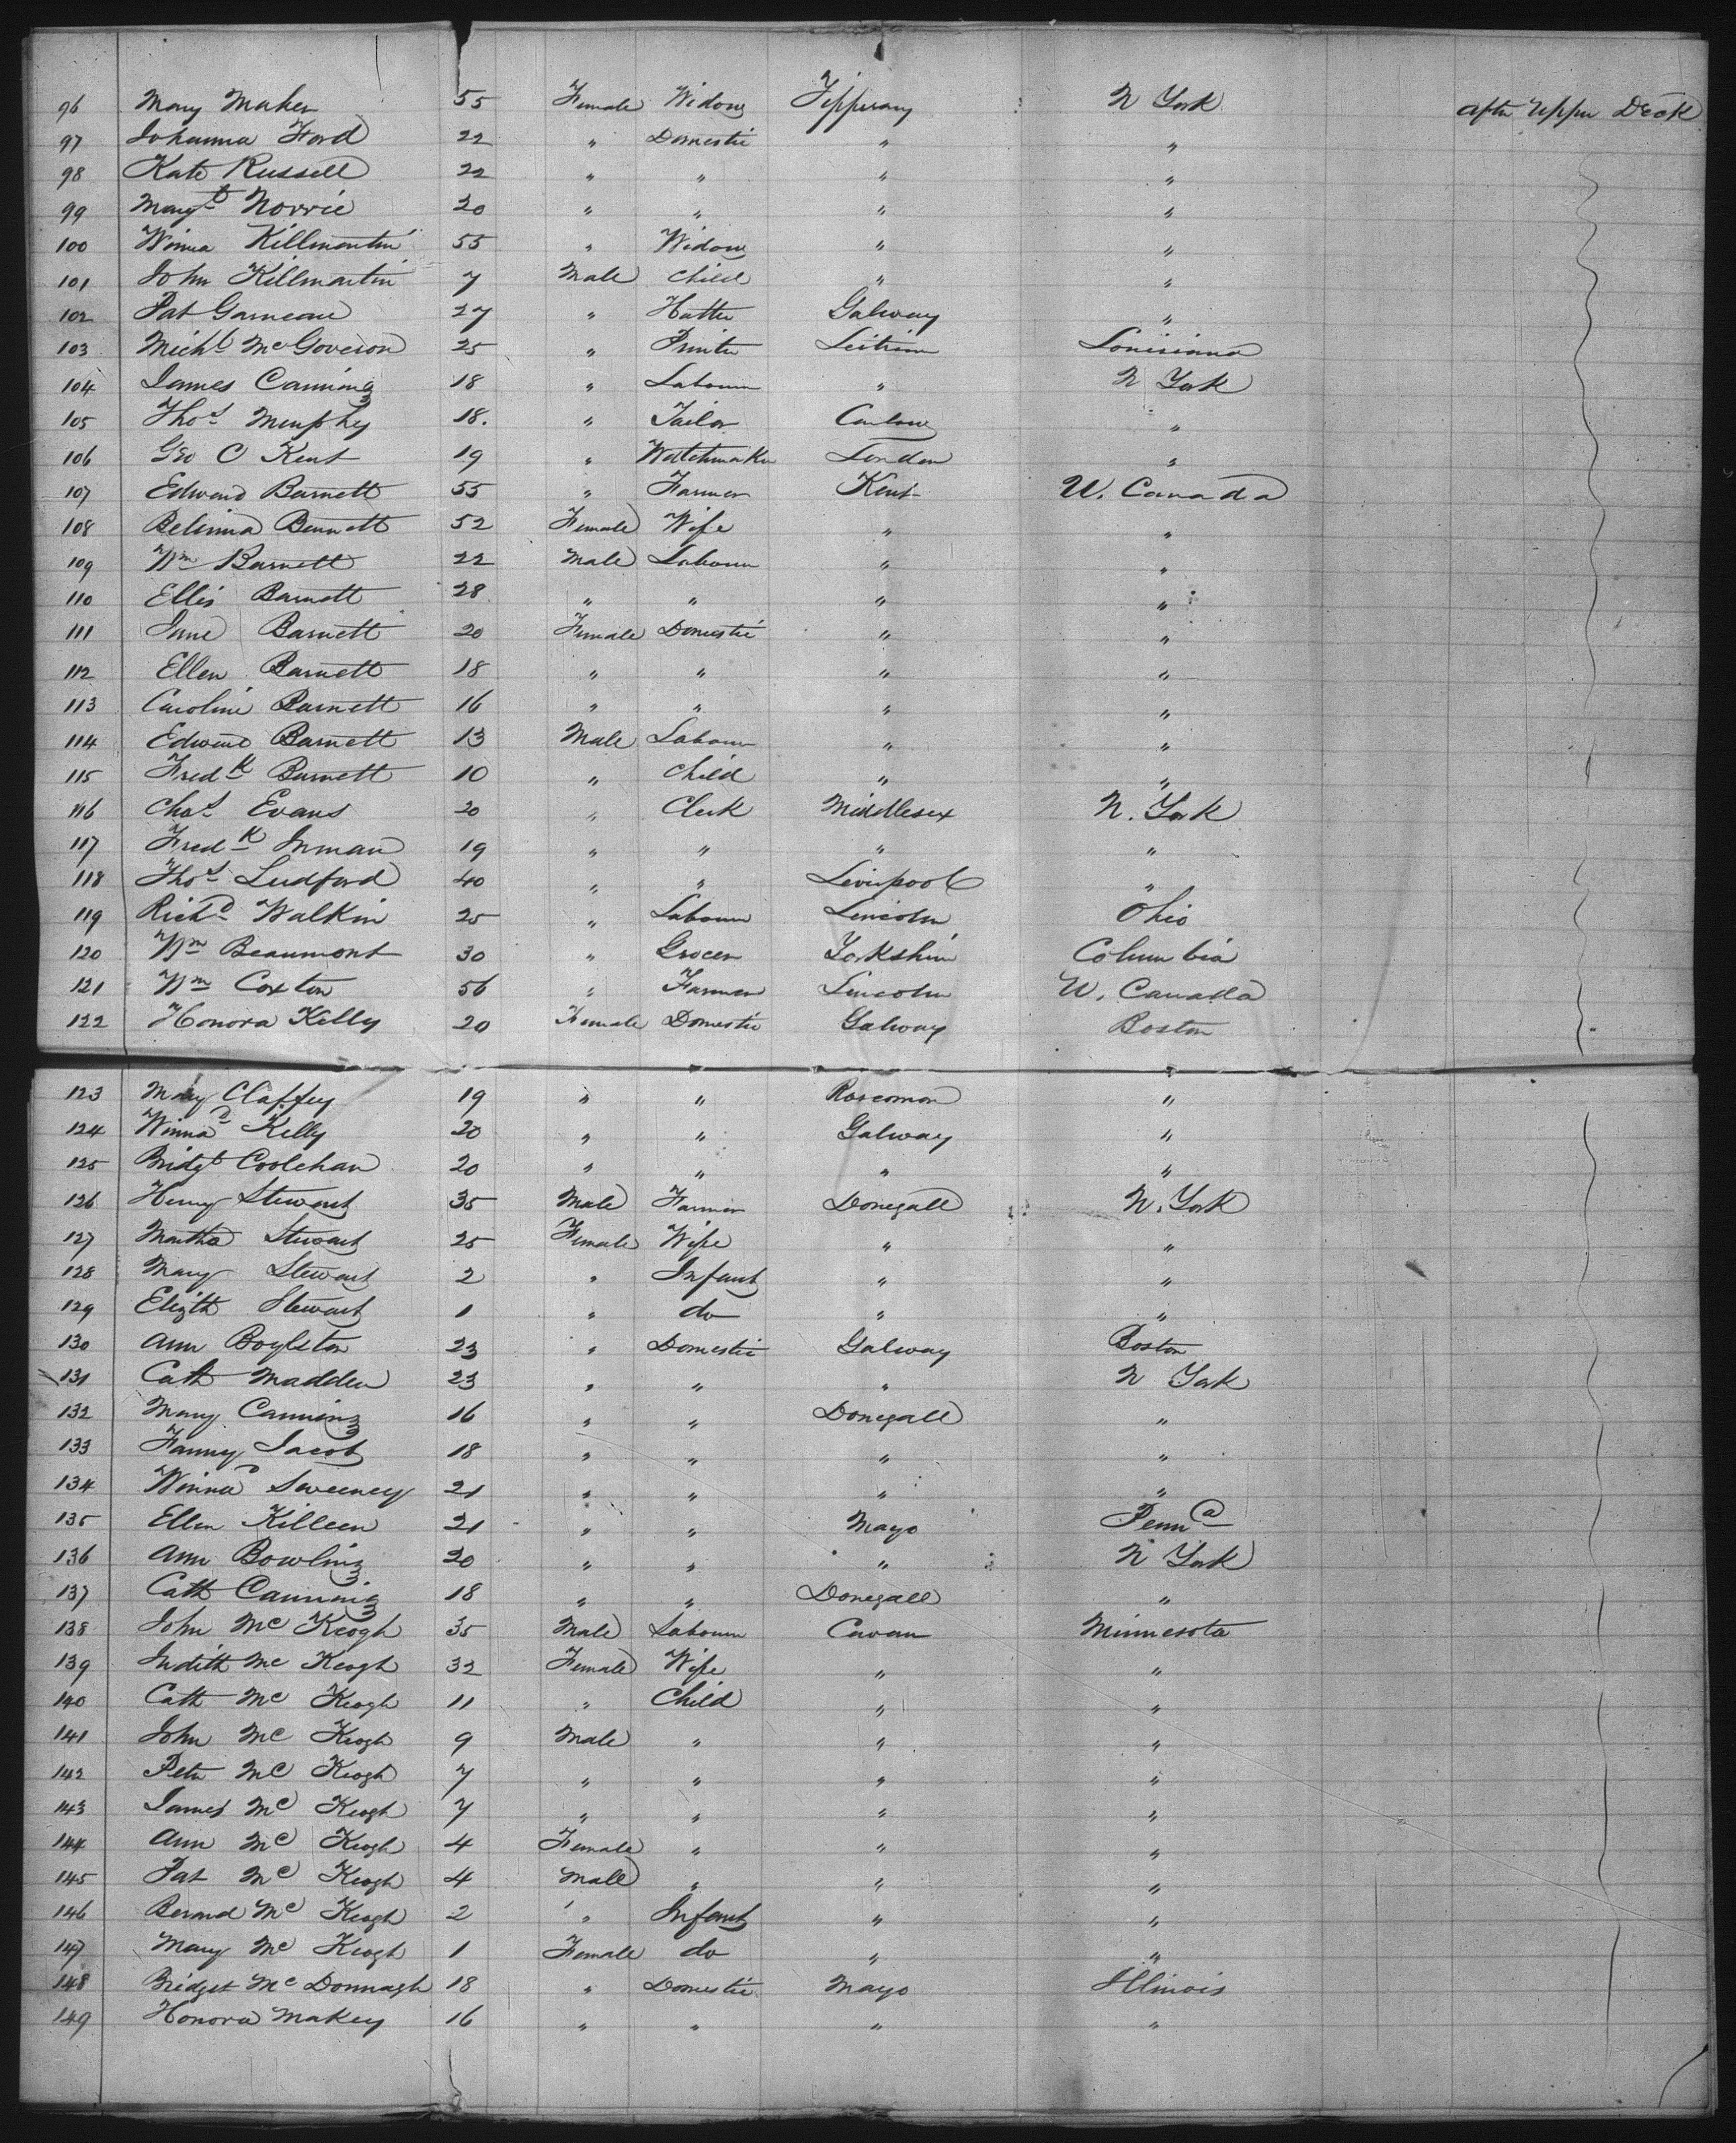 96 Mary Maher 55 Female Widow Tipperary N York After Upper Deck
97 Johanna Ford 22 " Domestic " "
98 Kate Russell 22 " " " "
99 Margt Norrie 20 " " " "
100 Winna Killmartin 55 " Widow " "
101 John Killmartin 7 Male Child " "
102 Pat Garneau 27 " Hatter Galway "
103 Michl McGoveron 25 " Printer Leitrim Louisiana
104 James Canning 18 " Labourer " N York
105 Thos Murphy 18. " Tailor Carlow "
106 Geo C Kent 19 " Watchmaker London "
107 Edward Barnett 55 " Farmer Kent W. Canada
108 Belinna Bennett 52 Female Wife " "
109 Wm Barnett 22 Male Labourer " "
110 Ellis Barnett 28 " " " "
111 Jane Barnett 20 Female Domestic " "
112 Ellen Barnett 18 " " " "
113 Caroline Barnett 16 " " " "
114 Edward Barnett 13 Male Labourer " "
115 Fredk Barnett 10 " Child " "
116 Chas Evans 20 " Clerk Middlesex N. York
117 Fredk Inman 19 " " " "
118 Thos Ludford 40 " " Liverpool "
119 Richd Walkin 25 " Labourer Lincoln Ohio
120 Wm Beaumont 30 " Grocer Yorkshire Columbia
121 Wm Coxton 56 " Farmer Lincoln W. Canada
122 Honora Kelly 20 Female Domestic Galway Boston
123 Mary Claffey 19 " " Roscomon "
124 Winnad Kelly 20 " " Galway "
125 Bridgt Coolehan 20 " " " "
126 Henry Stewart 35 Male Farmer Donegall N. York
127 Martha Stewart 25 Female Wife " "
128 Mary Stewart 2 " Infant " "
129 Elizth Stewart 1 " do " "
130 Ann Boylston 23 " Domestic Galway Boston
131 Cath Madden 23 " " " N York
132 Mary Canning 16 " " Donegall "
133 Fanny Jacob 18 " " " "
134 Winnad Sweeney 21 " " " "
135 Ellen Killeen 21 " " Mayo Penna
136 Ann Bowling 20 " " " N York
137 Cath Canning 18 " " Donegall "
138 John Mc Keogh 35 Male Labourer Cavan Minnesota
139 Judith Mc Keogh 32 Female Wife " "
140 Cath Mc Keogh 11 " Child " "
141 John Mc Keogh 9 Male " " "
142 Peter Mc Keogh 7 " " " "
143 James Mc Keogh 7 " " " "
144 Ann Mc Keogh 4 Female " " "
145 Pat Mc Keogh 4 Male " " "
146 Bernard Mc Keogh 2 " Infant " "
147 Mary Mc Keogh 1 Female do " "
148 Bridget Mc Donnagh 18 " Domestic Mayo Illinois
149 Honora Makey 16 " " " "